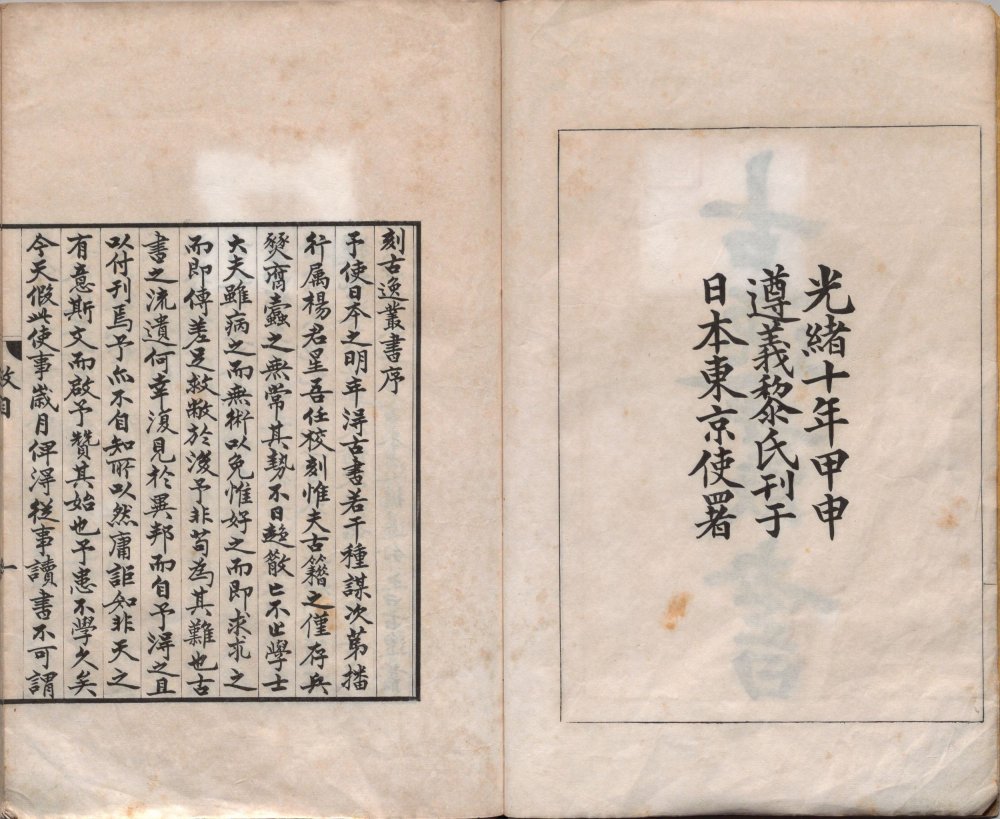 光緒十年甲申
遵義黎氏刊于
日本東京使署
刻古逸叢書序
予使日本之明年得古書若干種謀次苐播
行属楊君星吾任校刻惟夫古籍之僅存兵
燹腐蠹之無常其勢不日趍散亡不止學士
大夫雖病之而無術以免惟好之而即求求之
而即傳差足救敝於後予非苟為其難也古
書之流遺何幸復見於異邦而自予得之且
以付刊焉予亦不自知所以然庸詎知非天之
有意斯文而啟予贊其始也予患不學久矣
今天假此使事歲月俾得從事讀書不可謂
敘目
一